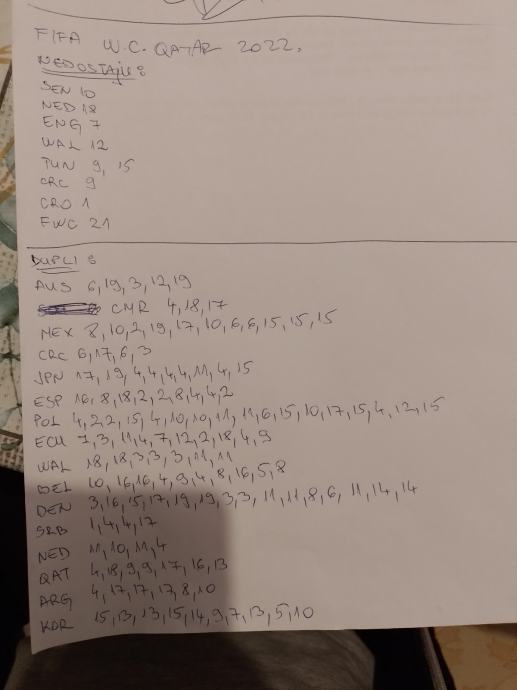 FIFA W.C. QATAR 2022.
NEDOSTAJU:
SEN 10
NED 18
ENG 7
WAL 12
TUN 9, 15
CRC 9
CRO 1
FWC 21
DUPLI:
AUS 6, 19, 3, 12, 19
CMR 4, 18, 17
MEX 8, 10, 2, 19, 17, 10, 6, 6, 15, 15, 15
CRC 6, 17, 6, 3
JPN 17, 19, 4, 4, 4, 4, 11, 4, 15
ESP 16, 8, 18, 2, 2, 8, 4, 4, 2
POL 4, 2, 2, 15, 4, 10, 10, 11, 11, 6, 15, 10, 17, 15, 4, 12, 15
ECU 7, 3, 11, 4, 7, 12, 2, 18, 4, 9
WAL 18, 18, 3, 3, 3, 11, 11
BEL 10, 16, 16, 4, 9, 4, 8, 16, 5, 8
DEN 3, 16, 15, 17, 19, 19, 3, 3, 11, 11, 8, 6, 11, 14, 14
SRB 1, 4, 4, 17
NED 11, 10, 11, 4
QAT 4, 18, 9, 9, 17, 16, 13
ARG 4, 17, 17, 17, 8, 10
KOR 15, 13, 13, 15, 14, 9, 7, 13, 5, 10